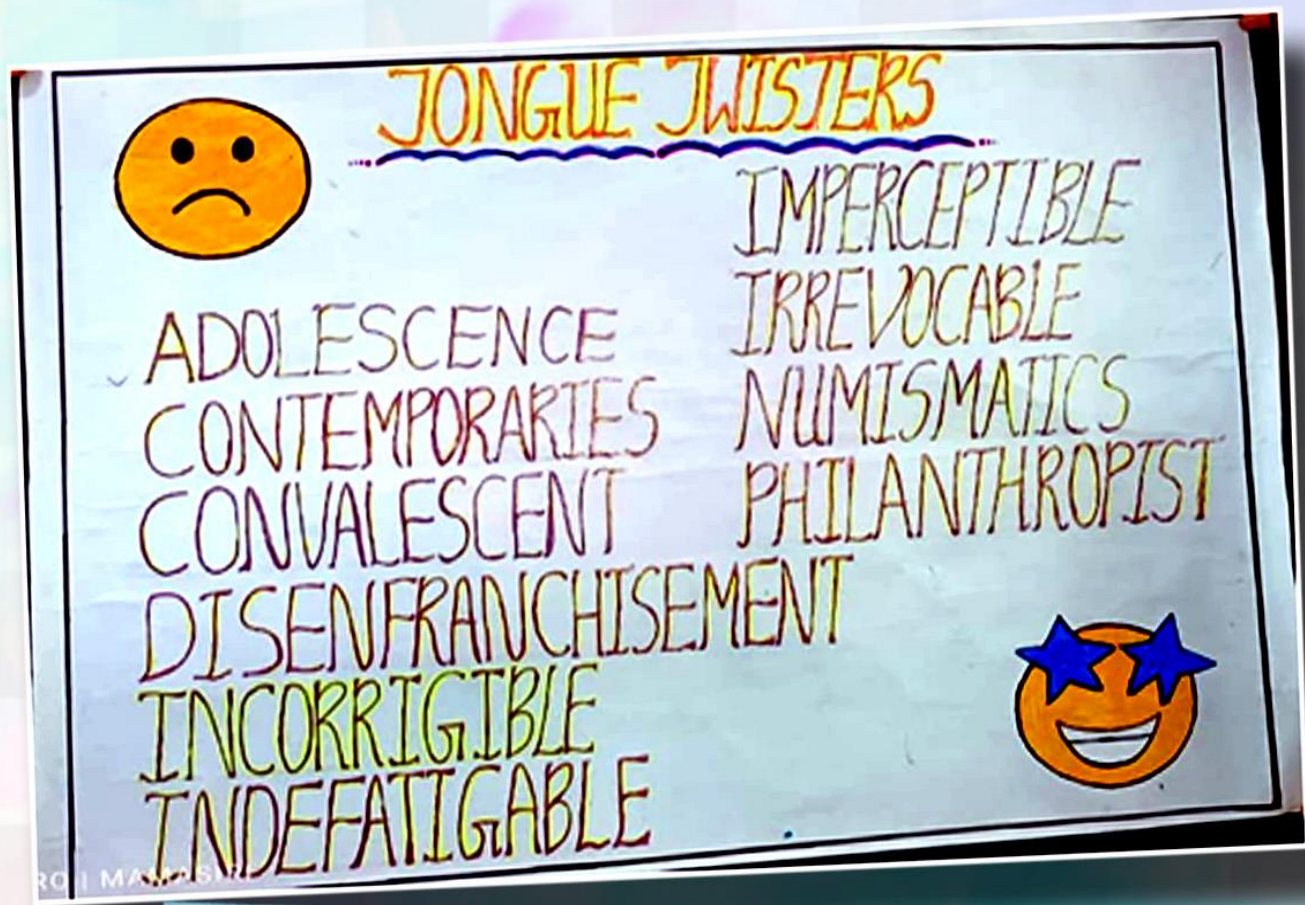 TONGUE TWISTERS
ADOLESCENCE
CONTEMPORARIES
CONVALESCENT
DISENFRANCHISEMENT
INCORRIGIBLE
INDEFATIGABLE
IMPERCEPTIBLE
IRREVOCABLE
NUMISMATICS
PHILANTHROPIST